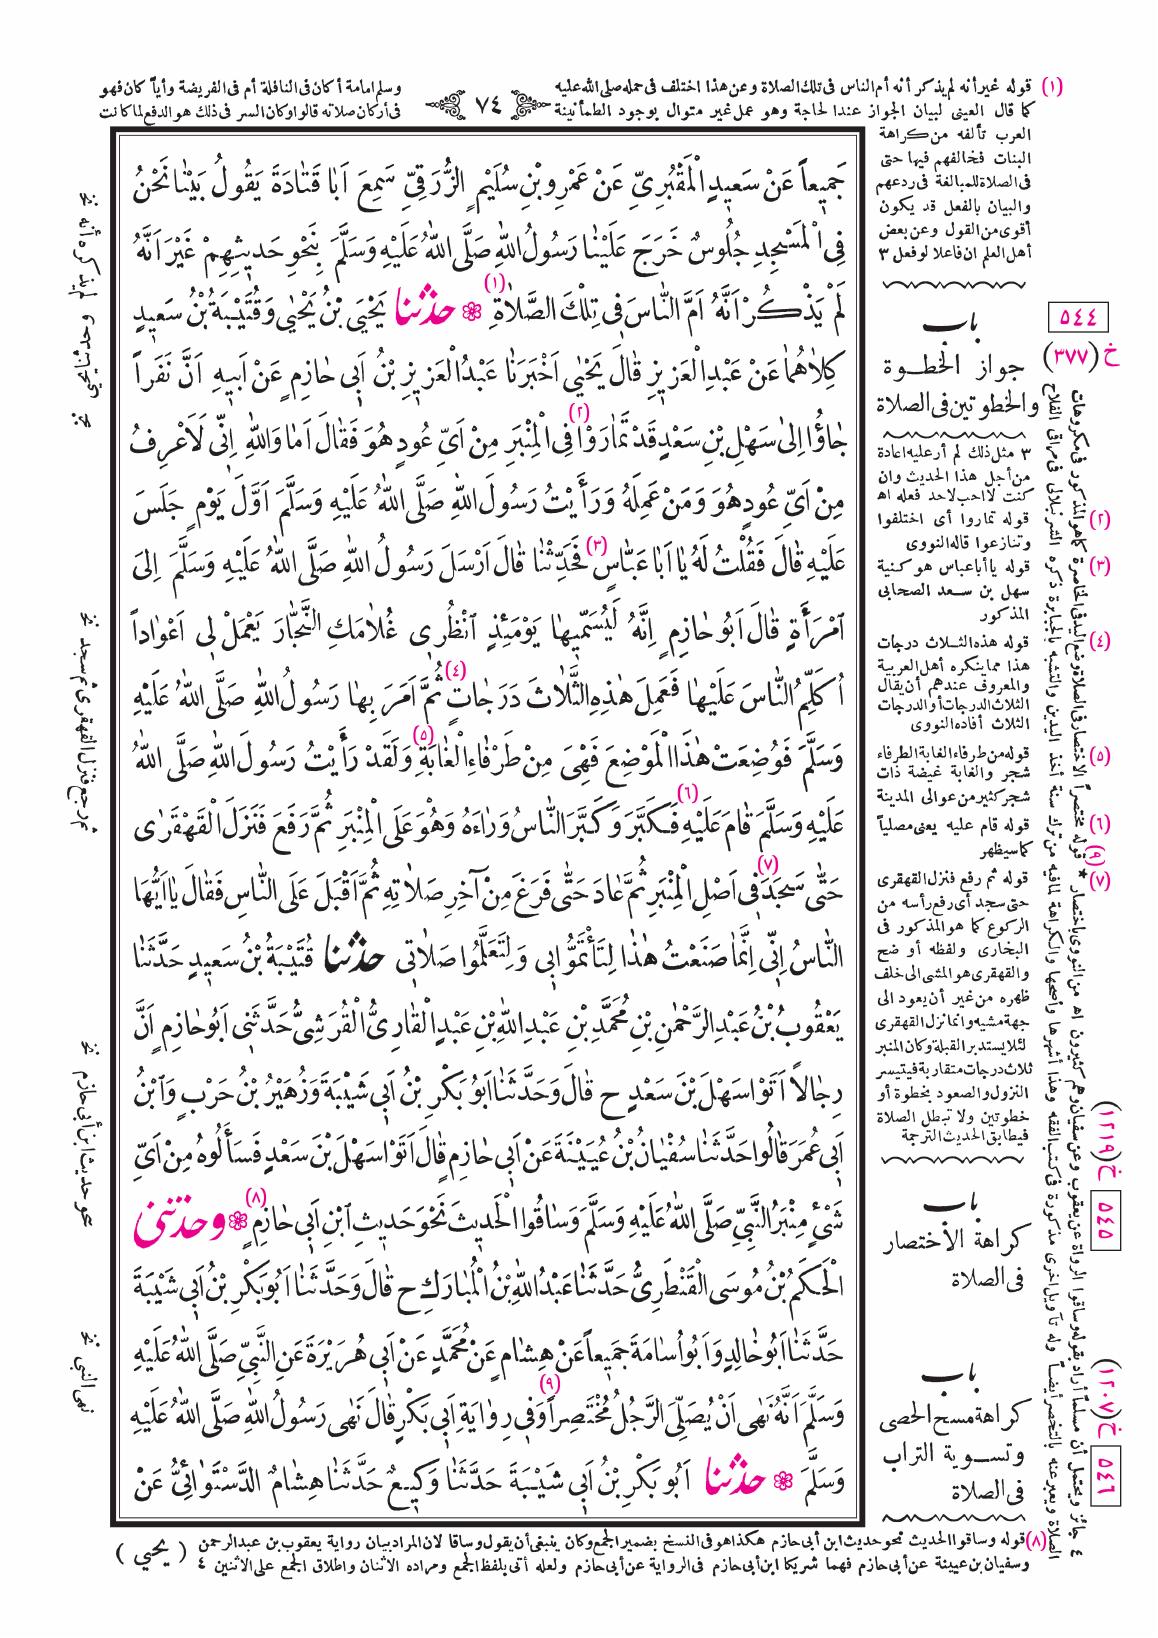 (١) قوله غير أنه لم يذكر أنه أم الناس فى تلك الصلاة وعن هذا اختلف فى حمله صلى الله عليه
وسلم امامة أكان فى النافلة أم فى الفريضة وأياً كان فهو
٧٤
كما قال العينى لبيان الجواز عند الحاجة وهو عمل غير متوال بوجود الطمأنينة
فى أركان صلاته قالوا وكان السر فى ذلك هو الدفع لما كانت
العرب تألفه من كراهة
البنات فخالفهم فيها حتى
فى الصلاة للمبالغة فى ردعهم
والبيان بالفعل قد يكون
أقوى من القول وعن بعض
أهل العلم ان فاعلا لو فعل ٣
جَمِيعاً عَنْ سَعِيدٍ الْمَقْبُرِىِّ عَنْ عَمْرِو بْنِ سُلَيْمٍ الزُّرَقِىِّ سَمِعَ اَبَا قَتَادَةَ يَقُولُ بَيْنَا نَحْنُ
فِى الْمَسْجِدِ جُلُوسٌ خَرَجَ عَلَيْنَا رَسُولُ اللهِ صَلَّى اللهُ عَلَيْهِ وَسَلَّمَ بِنَحْوِ حَدِيثِهِمْ غَيْرَ اَنَّهُ
لَمْ يَذْكُرْ اَنَّهُ اَمَّ النَّاسَ فِى تِلْكَ الصَّلاَةِ (١) ❁ حدثنا يَحْيَى بْنُ يَحْيٰى وَقُتَيْبَةُ بْنُ سَعِيدٍ
كِلاَهُمَا عَنْ عَبْدِ الْعَزِيزِ قَالَ يَحْيٰى اَخْبَرَنَا عَبْدُ الْعَزِيزِ بْنُ اَبِى حَازِمٍ عَنْ اَبِيهِ اَنَّ نَفَراً
جَاؤُا اِلىٰ سَهْلِ بْنِ سَعْدٍ قَدْ تَمَارَوْا (٢) فِى الْمِنْبَرِ مِنْ اَىِّ عُودٍ هُوَ فَقَالَ اَمَا وَاللهِ اِنِّى لَاَعْرِفُ
مِنْ اَىِّ عُودٍ هُوَ وَمَنْ عَمِلَهُ وَرَأَيْتُ رَسُولَ اللهِ صَلَّى اللهُ عَلَيْهِ وَسَلَّمَ اَوَّلَ يَوْمٍ جَلَسَ
عَلَيْهِ قَالَ فَقُلْتُ لَهُ يَا اَبَا عَبَّاسٍ (٣) فَحَدِّثْنَا قَالَ اَرْسَلَ رَسُولُ اللهِ صَلَّى اللهُ عَلَيْهِ وَسَلَّمَ اِلىَ
اَمْرَأَةٍ قَالَ اَبُو حَازِمٍ اِنَّهُ لَيُسَمِّيهَا يَوْمَئِذٍ اَنْظُرِى غُلاَمَكِ النَّجَّارَ يَعْمَلْ لِى اَعْوَاداً
اُكَلِّمُ النَّاسَ عَلَيْهَا فَعَمِلَ هٰذِهِ الثَّلاَثَ دَرَجَاتٍ (٤) ثُمَّ اَمَرَ بِهَا رَسُولُ اللهِ صَلَّى اللهُ عَلَيْهِ
وَسَلَّمَ فَوُضِعَتْ هٰذَا الْمَوْضِعَ فَهِىَ مِنْ طَرْفَاءِ الْغَابَةِ (٥) وَلَقَدْ رَأَيْتُ رَسُولَ اللهِ صَلَّى اللهُ
عَلَيْهِ وَسَلَّمَ قَامَ عَلَيْهِ (٦) فَكَبَّرَ وَكَبَّرَ النَّاسُ وَرَاءَهُ وَهُوَ عَلَى الْمِنْبَرِ ثُمَّ رَفَعَ فَنَزَلَ الْقَهْقَرٰى
حَتّٰى سَجَدَ (٧) فِى اَصْلِ الْمِنْبَرِ ثُمَّ عَادَ حَتّٰى فَرَغَ مِنْ آخِرِ صَلاَتِهِ ثُمَّ اَقْبَلَ عَلَى النَّاسِ فَقَالَ يَا اَيُّهَا
النَّاسُ اِنِّى اِنَّمَا صَنَعْتُ هٰذَا لِتَأْتَمُّوا بِى وَلِتَعَلَّمُوا صَلاَتِى حدثنا قُتَيْبَةُ بْنُ سَعِيدٍ حَدَّثَنَا
يَعْقُوبُ بْنُ عَبْدِ الرَّحْمٰنِ بْنِ مُحَمَّدِ بْنِ عَبْدِ اللهِ بْنِ عَبْدٍ الْقَارِىُّ الْقُرَشِىُّ حَدَّثَنِى اَبُو حَازِمٍ اَنَّ
رِجَالاً اَتَوْا سَهْلَ بْنَ سَعْدٍ ح قَالَ وَحَدَّثَنَا اَبُو بَكْرِ بْنُ اَبِى شَيْبَةَ وَزُهَيْرُ بْنُ حَرْبٍ وَابْنُ
اَبِى عُمَرَ قَالُوا حَدَّثَنَا سُفْيَانُ بْنُ عُيَيْنَةَ عَنْ اَبِى حَازِمٍ قَالَ اَتَوْا سَهْلَ بْنَ سَعْدٍ فَسَأَلُوهُ مِنْ اَىِّ
شَىْءٍ مِنْبَرُ النَّبِىِّ صَلَّى اللهُ عَلَيْهِ وَسَلَّمَ وَسَاقُوا الْحَدِيثَ نَحْوَ حَدِيثِ ابْنِ اَبِى حَازِمٍ (٨) ❁ وحدثنى
الْحَكَمُ بْنُ مُوسَى الْقَنْطَرِىُّ حَدَّثَنَا عَبْدُ اللهِ بْنُ الْمُبَارَكِ ح قَالَ وَحَدَّثَنَا اَبُو بَكْرِ بْنُ اَبِى شَيْبَةَ
حَدَّثَنَا اَبُو خَالِدٍ وَاَبُو اُسَامَةَ جَمِيعاً عَنْ هِشَامٍ عَنْ مُحَمَّدٍ عَنْ اَبِى هُرَيْرَةَ عَنِ النَّبِىِّ صَلَّى اللهُ عَلَيْهِ
وَسَلَّمَ اَنَّهُ نَهٰى اَنْ يُصَلِّىَ الرَّجُلُ مُخْتَصِراً (٩) وَفِى رِوَايَةِ اَبِى بَكْرٍ قَالَ نَهٰى رَسُولُ اللهِ صَلَّى اللهُ عَلَيْهِ
وَسَلَّمَ ❁ حدثنا اَبُو بَكْرِ بْنُ اَبِى شَيْبَةَ حَدَّثَنَا وَكِيعٌ حَدَّثَنَا هِشَامٌ الدَّسْتَوَائِىُّ عَنْ
٥٤٤
خ (٣٧٧)
باب
جواز الخطوة
والخطوتين فى الصلاة
٣ مثل ذلك لم أر عليه اعادة
من أجل هذا الحديث وان
كنت لا احب لاحد فعله اه
(٢) قوله تماروا أى اختلفوا
وتنازعوا قاله النووى
(٣) قوله يا أبا عباس هو كنية
سهل بن سعد الصحابى
المذكور
(٤) قوله هذه الثلاث درجات
هذا مما ينكره أهل العربية
والمعروف عندهم أن يقال
الثلاث الدرجات أو الدرجات
الثلاث أفاده النووى
(٥) قوله من طرفاء الغابة الطرفاء
شجر والغابة غيضة ذات
شجر كثير من عوالى المدينة
(٦) قوله قام عليه يعنى مصلياً
كما سيظهر
(٧) قوله ثم رفع فنزل القهقرى
حتى سجد أى رفع رأسه من
الركوع كما هو المذكور فى
البخارى ولفظه أو ضح
والقهقرى هو المشى الى خلف
ظهره من غير أن يعود الى
جهة مشيه وانما نزل القهقرى
لئلا يستدبر القبلة وكان المنبر
ثلاث درجات متقاربة فيتيسر
النزول والصعود بخطوة أو
خطوتين ولا تبطل الصلاة
فيطابق الحديث الترجمة
خ (١٢١٩)
٥٤٥
باب
كراهة الأختصار
فى الصلاة
خ (١٢٠٧)
٥٤٦
باب
كراهة مسح الحصى
وتسوية التراب
فى الصلاة
ثم رجع فنزل القهقرى ثم سجد نخ
نحو حديث ابن أبى حازم نخ
نهى النبى نخ
(٨) قوله وساقوا الحديث نحو حديث ابن أبى حازم هكذا هو فى النسخ بضمير الجمع وكان ينبغى أن يقول وساقا لان المراد بيان رواية يعقوب بن عبد الرحمن
وسفيان بن عيينة عن أبى حازم فهما شريكا ابن أبى حازم فى الرواية عن أبى حازم ولعله أتى بلفظ الجمع ومراده الاثنان واطلاق الجمع على الاثنين ٤
( يحيي )